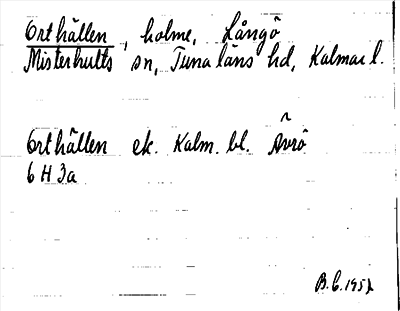 Orthällen, holme, Långö
Misterhults sn, Tunaläns hd, Kalmar l.
Orthällen ek. Kalm. bl. Ävrö
6 H 3a
B.E. 1957